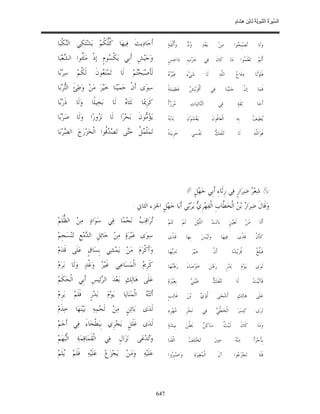 السِّيرَةُ النَّبَوِيَّةُ لِابْنِ هِشَامٍ
وَلَمَّا تُصْبِحُوا مِنْ بَعْدِ وُدٍّ وَأُلْفَةٍ أَحَادِيثَ فِيهَا كُلُّكُمْ يَشْتَكِي النَّكْبَا
أَلَمْ تَعْلَمُوا مَا كَانَ فِي حَرْبِ دَاحِسٍ وَجَيْشِ أَبِي يَكْسُومٍ إذْ مَلَئُوا الشِّعْبَا
فَلَوْلَا دِفَاعُ اللَّهِ لَا شَيْءَ غَيْرُهُ لَأَصْبَحْتُمْ لَا تَمْنَعُونَ لَكُمْ سِرْبَا
فَمَا إنْ جَنَيْنَا فِي قُرَيْشٍ عَظِيمَةً سِوَى أَنْ حَمَيْنَا خَيْرَ مَنْ وَطِئَ التُّرْبَا
أَخَا ثِقَةٍ فِي النَّائِبَاتِ مُرَزَّأً كَرِيمًا نَثَاهُ لَا بَخِيلًا وَلَا ذَرْبَا
يُطِيفُ بِهِ الْعَافُونَ يَغْشَوْنَ بَابَهُ يَؤُمُّونَ بَحْرًا لَا نَزُورًا وَلَا صَرْبَا
فَوَاَللَّهِ لَا تَنْفَكُّ نَفْسِي حَزِينَةً تَمَلْمَلُ حَتَّى تَصْدُقُوا الْخَزْرَجَ الضَّرْبَا
شِعْرُ ضِرَارٍ فِي رِثَاءِ أَبِي جَهْلٍ
وَقَالَ ضِرَارُ بْنُ الْخَطَّابِ الْفِهْرِيُّ يَرْثِي أَبَا جَهْلٍ الجزء الثاني
أَلَا مَنْ لَعَيْنٍ بَاتَتْ اللَّيْلَ لَمْ تَنَمْ تُرَاقِبُ نَجْمًا فِي سَوَادٍ مِنْ الظُّلَمْ
كَأَنَّ قَذًى فِيهَا وَلَيْسَ بِهَا قَذًى سِوَى عَبْرَةٍ مِنْ جَائِلِ الدَّمْعِ تَنْسَجِمُ
فَبَلِّغْ قُرَيْشًا أَنَّ خَيْرَ نَدِيِّهَا وَأَكْرَمَ مَنْ يَمْشِي بِسَاقٍ عَلَى قَدَمْ
ثَوَى يَوْمَ بَدْرٍ رَهْنَ خَوْصَاءَ رَهْنُهَا كَرِيمُ الْمَسَاعِي غَيْرُ وَغْدٍ وَلَا بَرَمْ
فَآلَيْتُ لَا تَنْفَكُّ عَيْنَيَّ بِعَبْرَةٍ عَلَى هَالِكٍ بَعْدَ الرَّئِيسِ أَبِي الْحَكَمْ
عَلَى هَالِكٍ أَشْجَى لُؤَيَّ بْنَ غَالِبٍ أَتَتْهُ الْمَنَايَا يَوْمَ بَدْرٍ فَلَمْ يَرِمْ
تَرَى كِسَرَ الْخَطِّيِّ فِي نَحْرِ مُهْرِهِ لَدَى بَائِنٍ مِنْ لَحْمِهِ بَيْنَهَا خِذَمْ
وَمَا كَانَ لَيْثٌ سَاكِنٌ بَطْنَ بِيشَةٍ لَدَى غَلَلٍ يَجْرِي بِبَطْحَاءَ فِي أَجَمْ
بِأَجْرَأَ مِنْهُ حِينَ تَخْتَلِفُ الْقَنَا وَتُدْعَى نَزَالِ فِي الْقَمَاقِمَةِ الْبُهَمْ
فَلَا تَجْزَعُوا آلَ الْمُغِيرَةِ وَاصْبِرُوا عَلَيْهِ وَمَنْ يَجْزَعْ عَلَيْهِ فَلَمْ يُلَمْ
647